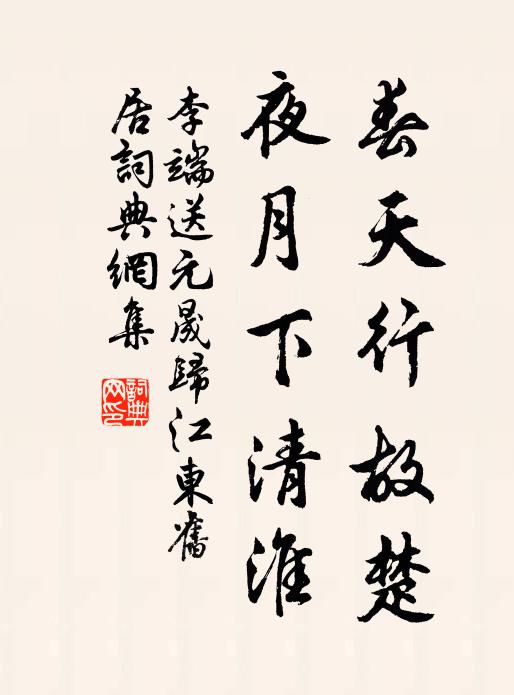 春天行故楚
夜月下清淮
李端送元晟歸江東舊
居詞典網集
詞典網印